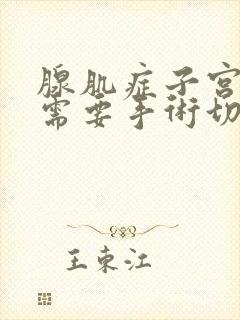 腺肌症子宫
需要手術切
王東江